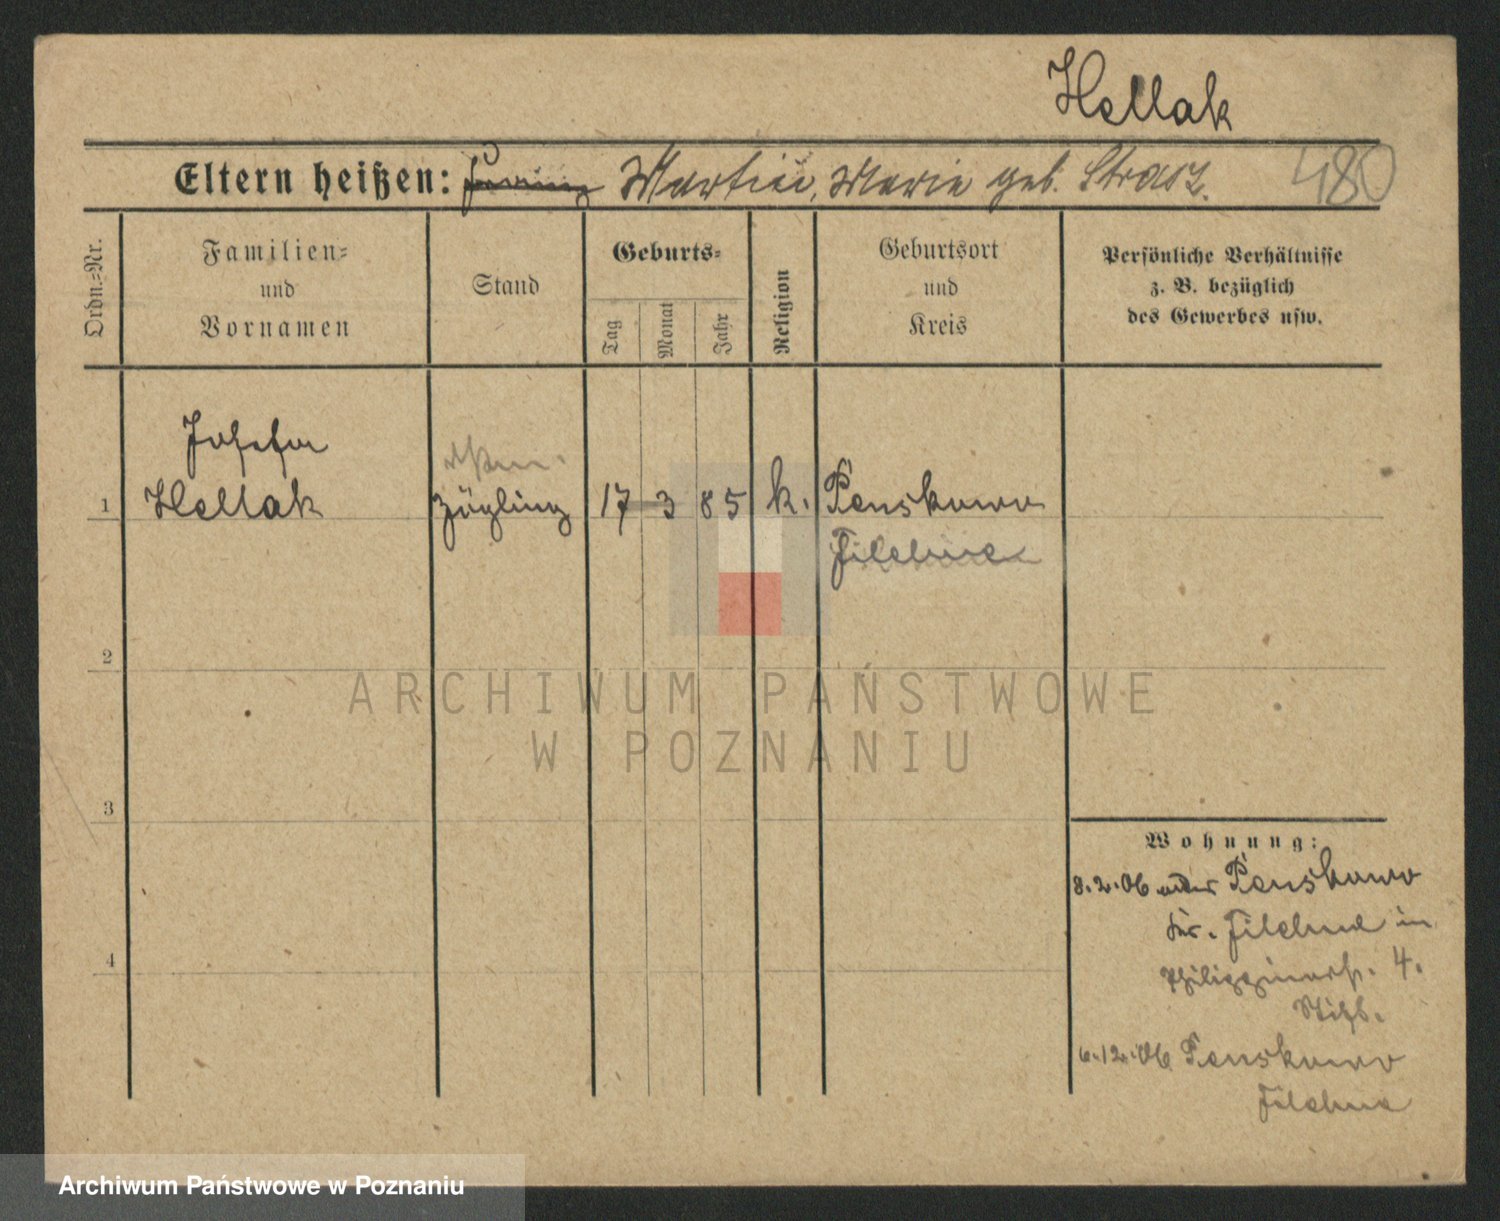 Hellak
Eltern heißen: Martin, Marie geb. Strasz. 480
Ordn.=Nr.
Familien=
und
Vornamen
Stand
Geburts=
Tag
Monat
Jahr
Religion
Geburtsort
und
Kreis
Persönliche Verhältnisse
z. B. bezüglich
des Gewerbes usw.
Josefa
1 Hellak Zögling 17 3 85 k. Penskowo
Filehne
2
3
4
Wohnung:
8.2.06 Penskowo
Kr. Filehne in
4.
6.12.06 Penskowo
Filehne
ARCHIWUM PAŃSTWOWE
W POZNANIU
Archiwum Państwowe w Poznaniu